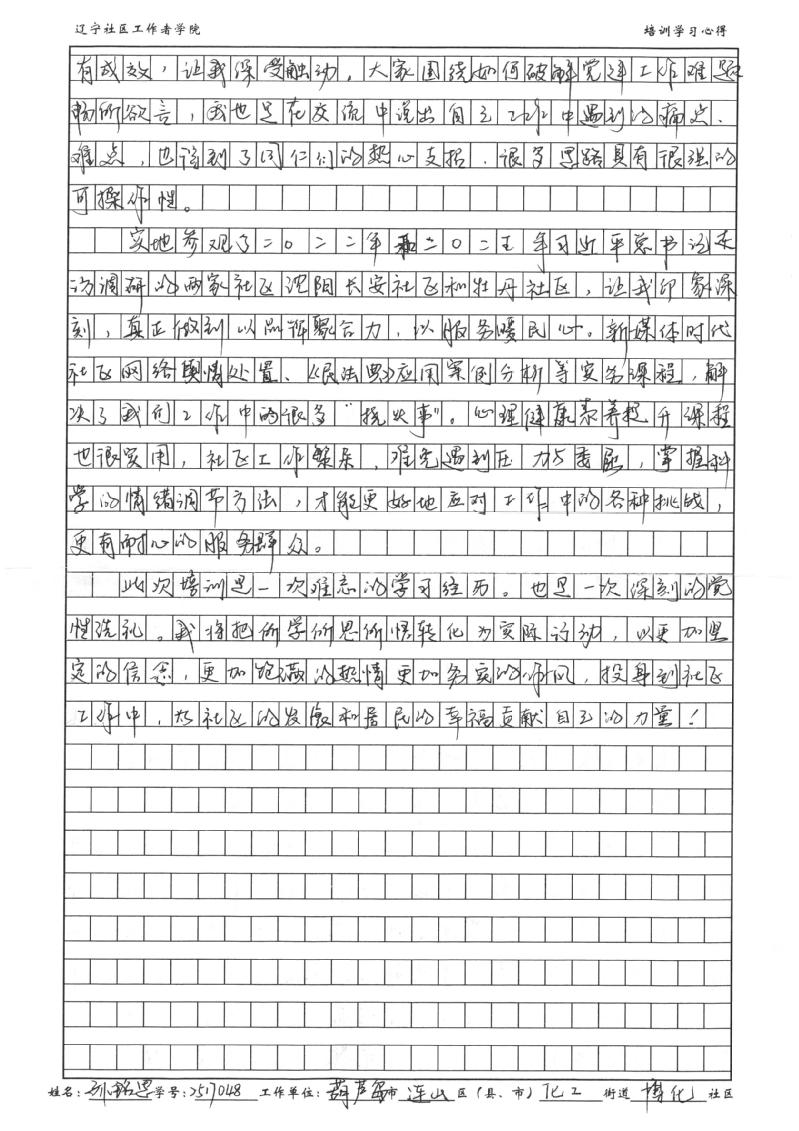 辽宁社区工作者学院 培训学习心得
有成效，让我深受触动。大家围绕如何破解党建工作难题
畅所欲言，我也是在交流中说出自己工作中遇到的痛点、
难点，也得到了同仁们的热心支招，很多思路具有很强的
可操作性。
实地参观了二〇二二年和二〇二五年习近平总书记走
访调研的两家社区沈阳长安社区和牡丹社区，让我印象深
刻，真正做到以品牌聚合力，以服务暖民心。新媒体时代
社区网络舆情处置、《民法典》应用案例分析等实务课程，解
决了我们工作中的很多“挠头事”。心理健康素养提升课程
也很实用，社区工作繁杂，难免遇到压力与委屈，掌握科
学的情绪调节方法，才能更好地应对工作中的各种挑战，
更有耐心的服务群众。
此次培训是一次难忘的学习经历。也是一次深刻的党
性洗礼。我将把所学所思所悟转化为实际行动，以更加坚
定的信念，更加饱满的热情更加务实的作风，投身到社区
工作中，为社区的发展和居民的幸福贡献自己的力量！
姓名：孙 学号：2517048 工作单位：葫芦岛市 连山 区（县、市）化工 街道 博化 社区